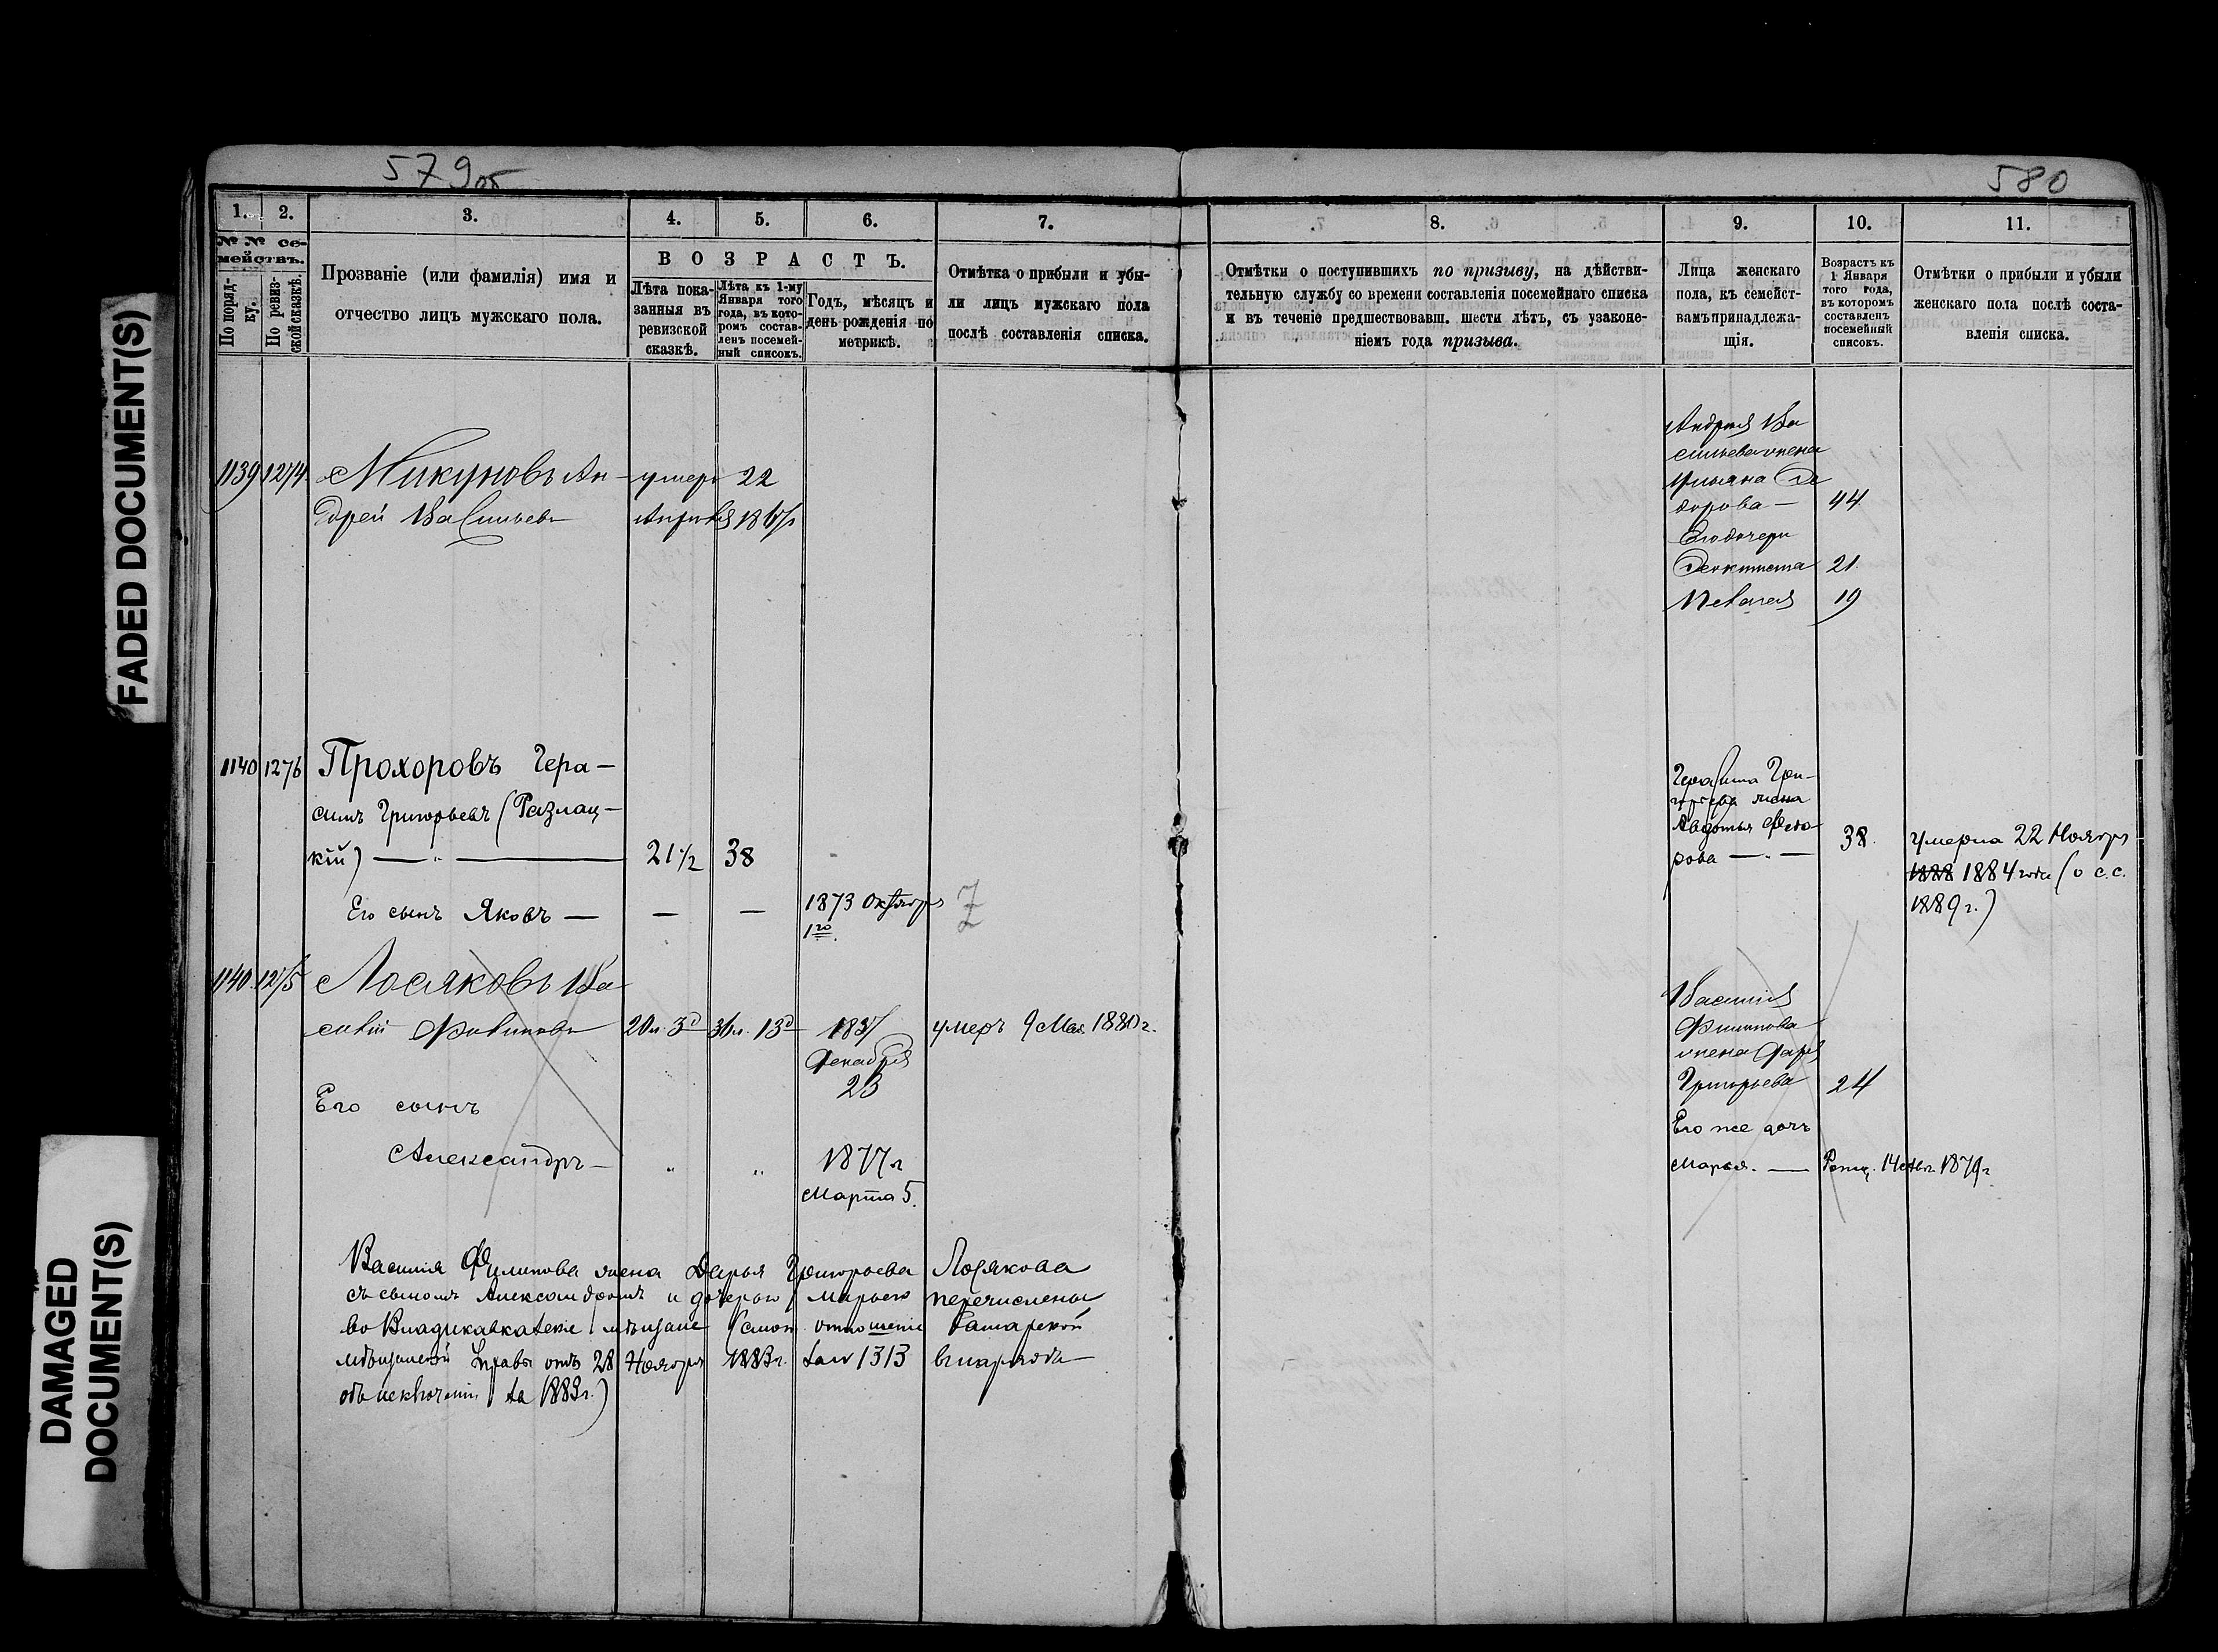 FADED DOCUMENT(S)
DAMAGED
DOCUMENT(S)
579об
580
1. 2. 3. 4. 5. 6. 7.
№ № се-
мействъ.
По поряд-
ку.
По ревиз-
ской сказкѣ.
Прозваніе (или фамилія) имя и
отчество лицъ мужскаго пола.
ВОЗРАСТЪ.
Лѣта пока-
занныя въ
ревизской
сказкѣ.
Лѣта къ 1-му
Января того
года, въ кото-
ромъ состав-
ленъ посемей-
ный списокъ.
Годъ, мѣсяцъ и
день рожденія по
метрикѣ.
Отмѣтка о прибыли и убы-
ли лицъ мужскаго пола
послѣ составленія списка.
8. 9. 10. 11.
Отмѣтки о поступившихъ по призыву, на дѣйстви-
тельную службу со времени составленія посемейнаго списка
и въ теченіе предшествовавш. шести лѣтъ, съ узаконе-
ніемъ года призыва.
Лица женскаго
пола, къ семейст-
вамъ принадлежа-
щія.
Возрастъ къ
1 Января
того года,
въ которомъ
составленъ
посемейный
списокъ.
Отмѣтки о прибыли и убыли
женскаго пола послѣ соста-
вленія списка.
1139 1274 Микуновъ Ан- умеръ 22
дрей Васильевъ Апрѣля
Андрея Ва
сильева жена
Ульяна Ѳе
дорова — 44
Его дочери
Ѳеоктиста 21
Пелагея 19
1140 1276 Прохоровъ Гера-
симъ Григорьевъ (Разлац-
кій) — 21 1/2 38
Его сынъ Яковъ — — — 1873 Октября
1го
Герасима Гри-
горьева жена
Авдотья Федо-
рова — 38
Умерла 22 Ноября
1888 1884 года (о с.с.
1889 г.)
1140 1275 Лосяковъ Ва
силій Филиповъ 20 л. 3д 36 л. 13д 1837 умеръ 9 Мая 1880 г.
Декабря
23
Его сынъ
Александръ — " " 1877 г
Марта 5.
Василія
Филипова
жена Дарья
Григорьева 24
Его же дочь
Марья. — Рожд. 14 1879 г
Василія Филипова жена Дарья Григорьева Лосякова
съ сыномъ Александромъ и дочерью Марьею перечислены
во Владикавказскіе мѣщане (смотр. отношеніе Самарской
мѣщанской Управы отъ 28 Ноября 1883 г. за № 1313 въ нарядѣ
объ исключеніи за 1883 г.)